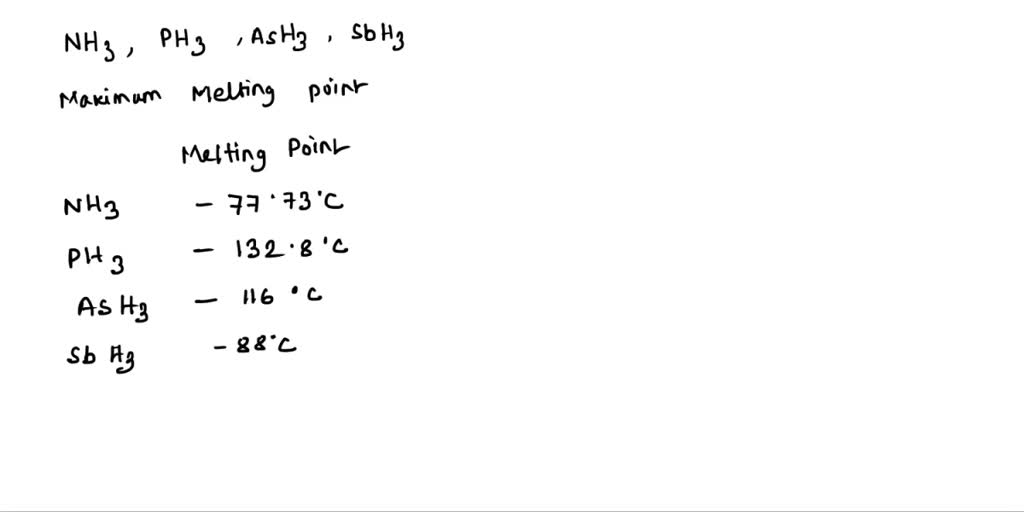 NH3, PH3, AsH3, SbH3
Maximum Melting point
Melting Point
NH3 - 77.73°C
PH3 - 132.8°C
AsH3 - 116°C
SbH3 - 88°C